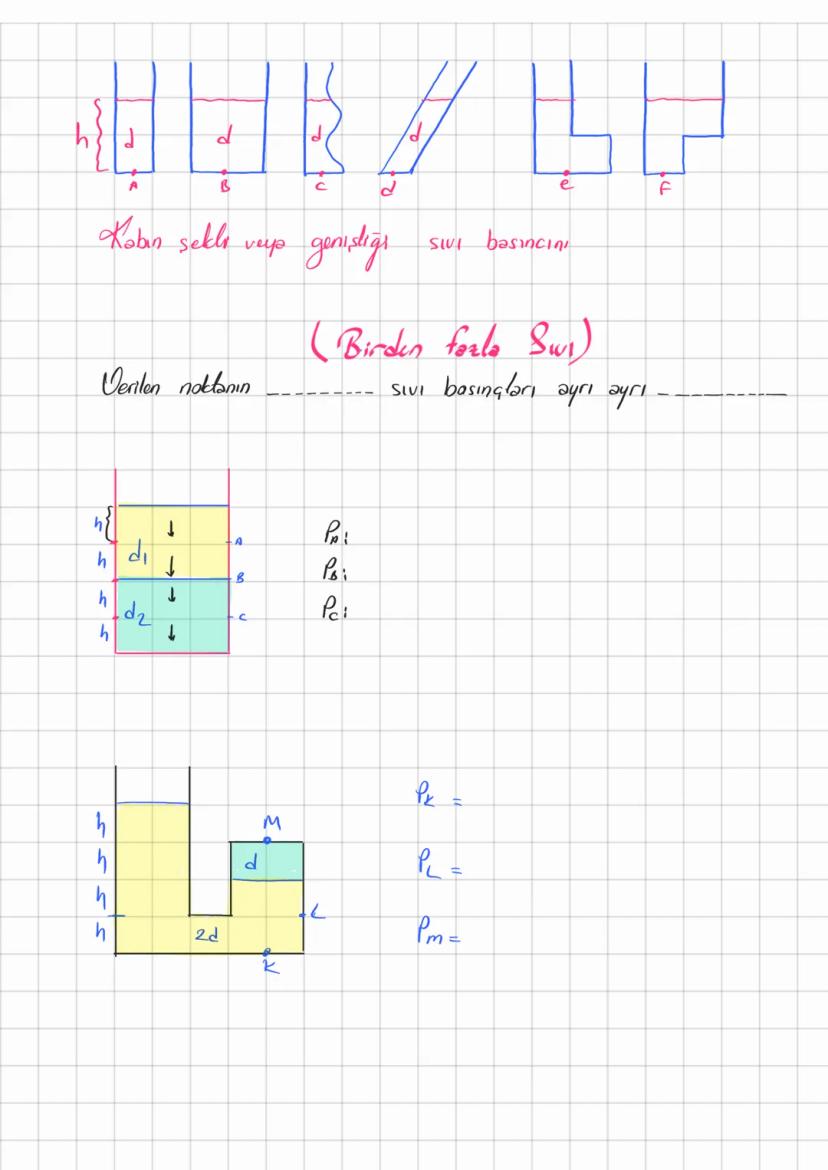 h { d d d d
A B C d e F
Kabın şekli veya genişliği sıvı basıncını
(Birden fazla Sıvı)
Verilen noktanın ---------- sıvı basınçları ayrı ayrı ------------
h { A PA:
h d1 B PB:
h d2 C PC:
h
PK =
h M
h d PL =
h L
h 2d Pm =
K